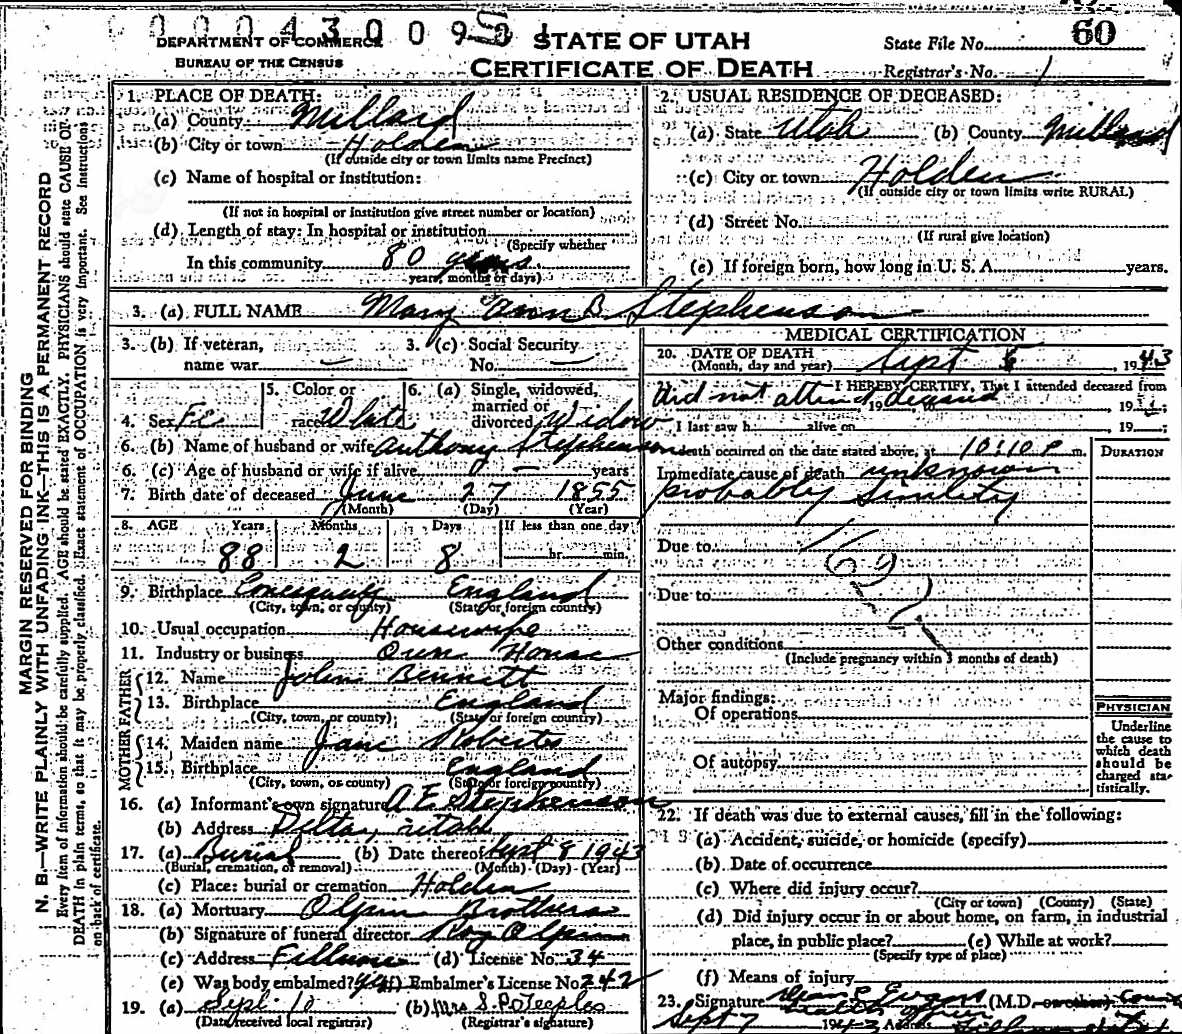 0 0 0 4 3 0 0 9
DEPARTMENT OF COMMERCE
BUREAU OF THE CENSUS
STATE OF UTAH
CERTIFICATE OF DEATH
State File No. 60
Registrar's No. 1
MARGIN RESERVED FOR BINDING
N. B.—WRITE PLAINLY WITH UNFADING INK—THIS IS A PERMANENT RECORD
Every item of information should be carefully supplied. AGE should be stated EXACTLY. PHYSICIANS should state CAUSE OF
DEATH in plain terms, so that it may be properly classified. Exact statement of OCCUPATION is very important. See instructions
on back of certificate.
1. PLACE OF DEATH:
(a) County Millard
(b) City or town Holden
(If outside city or town limits name Precinct)
(c) Name of hospital or institution:
(If not in hospital or institution give street number or location)
(d) Length of stay: In hospital or institution
(Specify whether
In this community 80 years
years, months or days)
2. USUAL RESIDENCE OF DECEASED:
(a) State Utah (b) County Millard
(c) City or town Holden
(If outside city or town limits write RURAL)
(d) Street No.
(If rural give location)
(e) If foreign born, how long in U. S. A. years.
3. (a) FULL NAME Mary Ann B. Stephenson
3. (b) If veteran, name war —
3. (c) Social Security No. —
4. Sex Fe
5. Color or race White
6. (a) Single, widowed, married or divorced Widow
6. (b) Name of husband or wife Anthony Stephenson
6. (c) Age of husband or wife if alive — years
7. Birth date of deceased June 27 1855
(Month) (Day) (Year)
8. AGE Years Months Days If less than one day
88 2 8 hr. min.
9. Birthplace England
(City, town, or county) (State or foreign country)
10. Usual occupation Housewife
11. Industry or business Own Home
FATHER
12. Name John Bennett
13. Birthplace England
(City, town, or county) (State or foreign country)
MOTHER
14. Maiden name Jane Roberts
15. Birthplace England
(City, town, or county) (State or foreign country)
16. (a) Informant's own signature A E Stephenson
(b) Address Delta, Utah
17. (a) Burial (b) Date thereof Sept 8 1943
(Burial, cremation, or removal) (Month) (Day) (Year)
(c) Place: burial or cremation Holden
18. (a) Mortuary Olpin Brothers
(b) Signature of funeral director Roy Olpin
(c) Address Fillmore (d) License No. 34
(e) Was body embalmed? yes (f) Embalmer's License No. 242
19. (a) Sept 10 (b) Mrs S. P. Teeples
(Date received local registrar) (Registrar's signature)
MEDICAL CERTIFICATION
20. DATE OF DEATH
(Month, day and year) Sept 5, 1943
I HEREBY CERTIFY, That I attended deceased from
did not attend deceased, 19 to , 19
I last saw h alive on , 19 ;
death occurred on the date stated above, at 10:10 P m.
DURATION
Immediate cause of death unknown
probably senility
162
Due to
Due to
Other conditions
(Include pregnancy within 3 months of death)
Major findings:
Of operations
Of autopsy
PHYSICIAN
Underline
the cause to
which death
should be
charged sta-
tistically.
22. If death was due to external causes, fill in the following:
(a) Accident, suicide, or homicide (specify)
(b) Date of occurrence
(c) Where did injury occur?
(City or town) (County) (State)
(d) Did injury occur in or about home, on farm, in industrial
place, in public place? (e) While at work?
(Specify type of place)
(f) Means of injury
23. Signature Evans (M.D. or other)
Health officer
Sept 7 1943 Address